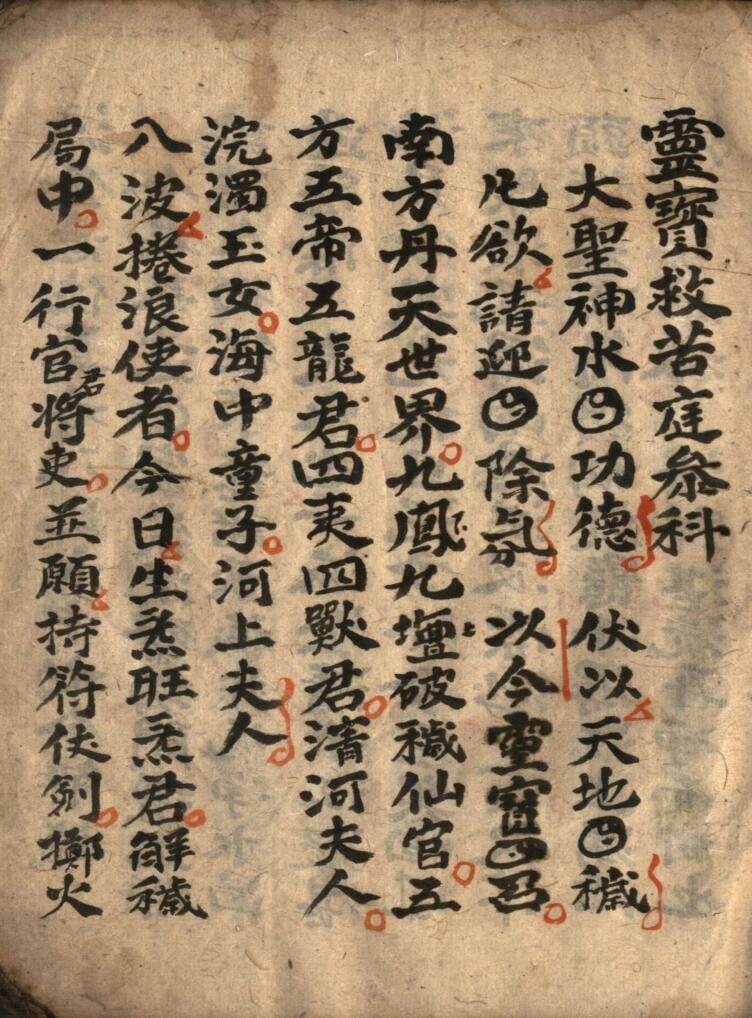 靈寶救苦庭參科
大聖神水〇功德 伏以天地〇穢
凡欲請迎〇除氛 以今靈寶〇召
南方丹天世界九鳳下九壇上破穢仙官五
方五帝五龍君四夷四獸君濟河夫人
浣濁玉女海中童子河上夫人
八波捲浪使者今日生炁旺炁君解穢
局中一行官君將吏並願持符仗劍擲火